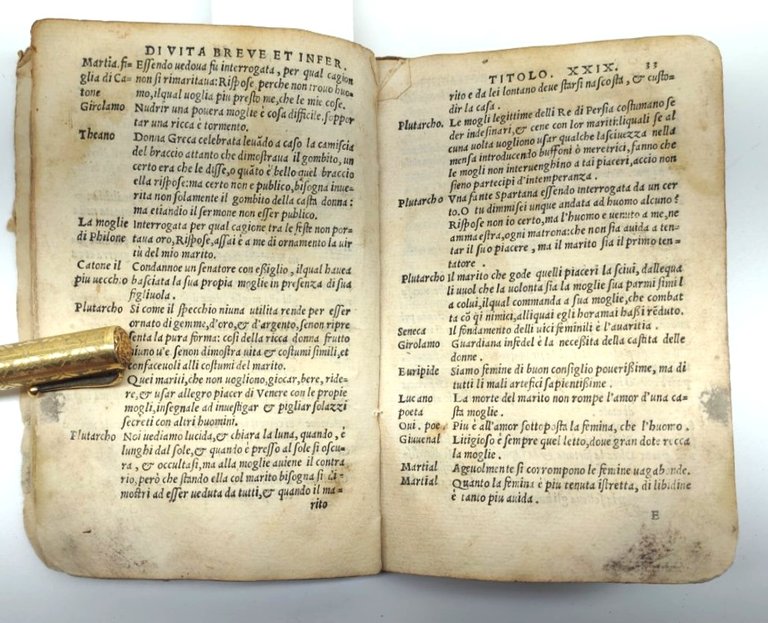 DI VITA BREVE ET INFER.
Martia.fi- Essendo uedoua fu interrogata, per qual cagion
glia di Ca- non si rimaritaua: Rispose, perche non trouo huo-
tone mo, ilqual uoglia piu presto me, che le mie cose.
Girolamo Nudrir una pouera moglie è cosa difficile. soppor
tar una ricca è tormento.
Theano Donna Greca celebrata leuãdo a caso la camiscia
del braccio attanto che dimostraua il gombito, un
certo era che le disse, o quãto è bello quel braccio
ella rispose: ma certo non e publico, bisogna inue-
rita non solamente il gombito della casta donna:
ma etiandio il sermone non esser publico.
La moglie Interrogata per qual cagione tra le feste non por-
di Philone taua oro, Rispose, assai è a me di ornamento la uir
tù del mio marito.
Catone il Condannoe un senatore con essiglio, ilqual hauea
piu uecchio basciata la sua propia moglie in presenza di sua
figliuola.
Plutarcho Si come il specchio niuna utilita rende per esser
ornato di gemme, d'oro, & d'argento, senon ripre
senta la pura forma: cosi della ricca donna frutto
niuno u'e senon dimostra uita & costumi simili, et
confaceuoli alli costumi del marito.
Quei mariti, che non uogliono, giocar, bere, ride-
re, & usar allegro piacer di Venere con le propie
mogli, insegnale ad inuestigar & pigliar solazzi
secreti con altri huomini.
Plutarcho Noi uediamo lucida, & chiara la luna, quando, è
lunghi dal sole, & quando è presso al sole si oscu-
ra, & occultasi, ma alla moglie auiene il contra
rio, però che stando ella col marito bisogna si di-
mostri ad esser ueduta da tutti, & quando il ma-
rito
TITOLO. XXIX. 33
rito e da lei lontano deue starsi nascosta, & custo-
dir la casa.
Plutarcho. Le mogli legittime delli Re di Persia costumano se
der indesinari, & cene con lor mariti: liquali se al
cuna uolta uogliono usar qualche lasciuezza nella
mensa introducendo buffoni ò meretrici, fanno che
le mogli non interuenghino a tai piaceri, accio non
sieno partecipi d'intemperanza.
Plutarcho Vna fante Spartana essendo interrogata da un cer
to. O tu dimmi se unque andata ad huomo alcuno?
Rispose non io certo, ma l'huomo e uenuto a me, ne
ammaestra, ogni matrona: che non sia auida a ten-
tar il suo piacere, ma il marito sia il primo ten-
tatore.
Plutarcho Il marito che gode quelli piaceri la sciui, dallequa
li uuol che la uolonta sia la moglie sua parmi simil
a colui, ilqual commanda a sua moglie, che combat
ta cõ qi nimici, alliquai egli horamai hassi rẽduto.
Seneca Il fondamento delli uici feminili è l'auaritia.
Girolamo Guardiana infedel è la necessita della castita delle
donne.
Euripide Siamo femine di buon consiglio pouerissime, ma di
tutti li mali artefici sapientissime.
Lucano La morte del marito non rompe l'amor d'una ca-
poeta sta moglie.
Oui. poe. Piu è all'amor sottoposta la femina, che l'huomo.
Giuuenal Litigioso è sempre quel letto, doue gran dote recca
la moglie.
Martial Ageuolmente si corrompono le femine uagabonde.
Martial Quanto la femina è piu tenuta istretta, di libidine
è tanto piu auida.
E